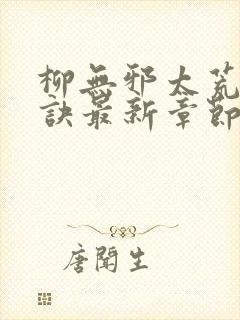 柳無邪太荒
訣最新章節
唐聞生